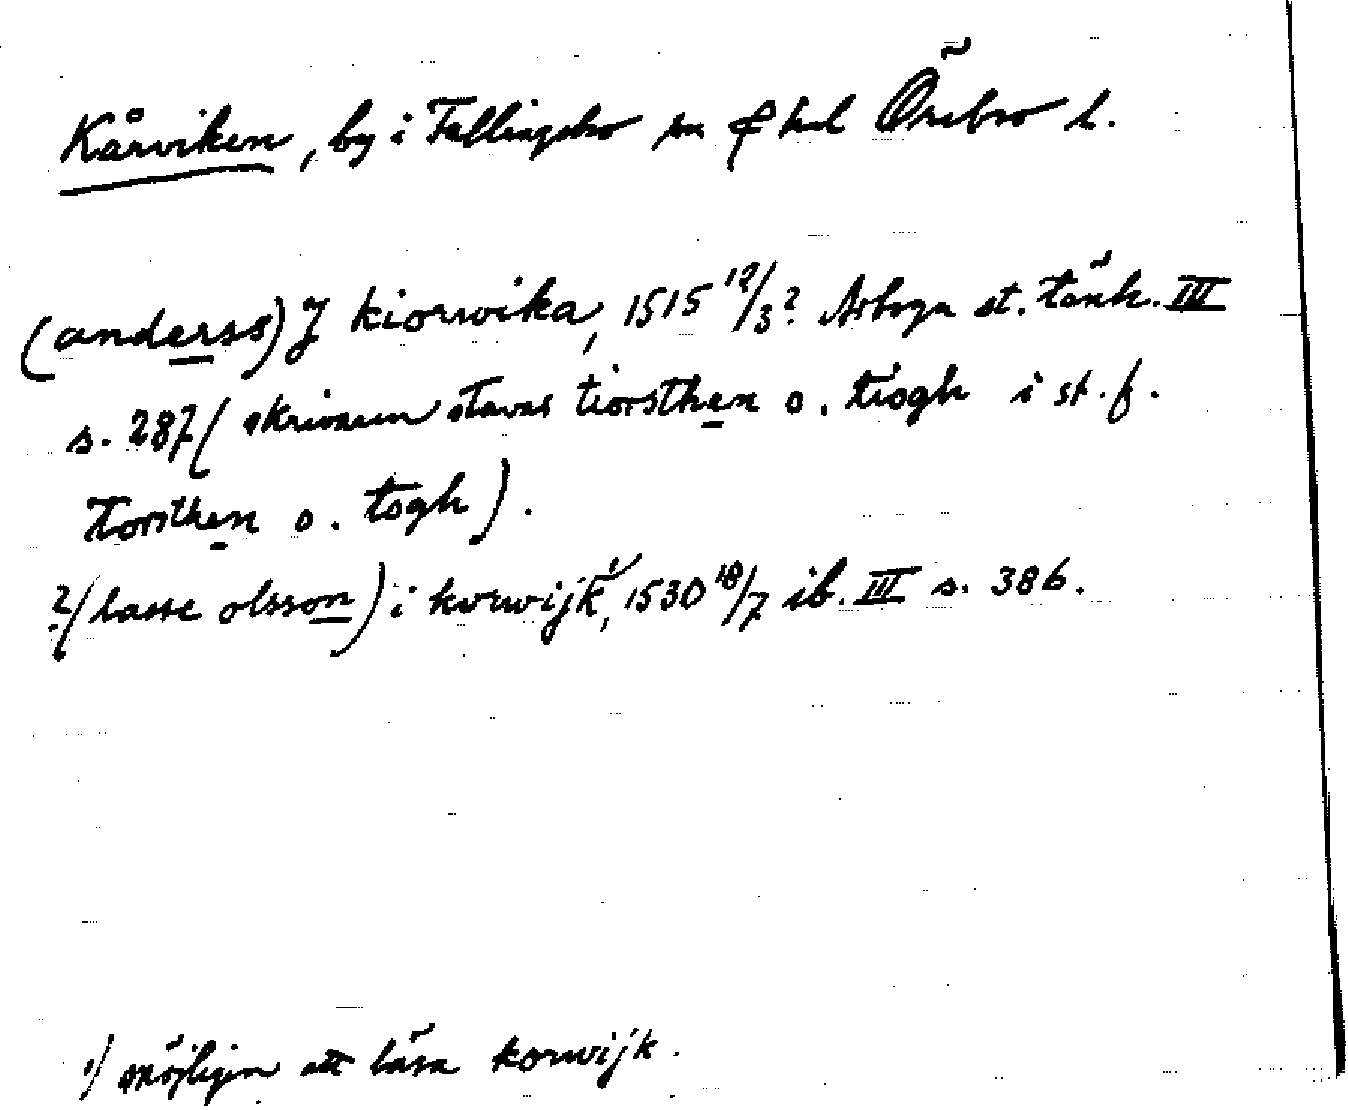 Kårviken, by i Fellingsbro sn f hd Örebro l.
(anderss) J kiorwika, 1515 19/3? Arboga st. tänk. III
s. 287 (skrivaren stavar tiorsthen o. tiogh i st. f.
Torsthen o. togh).
?(lasse olsson) i korwijk¹, 1530 18/7 ib. III s. 386.
1) möjligen att läsa korwijk.